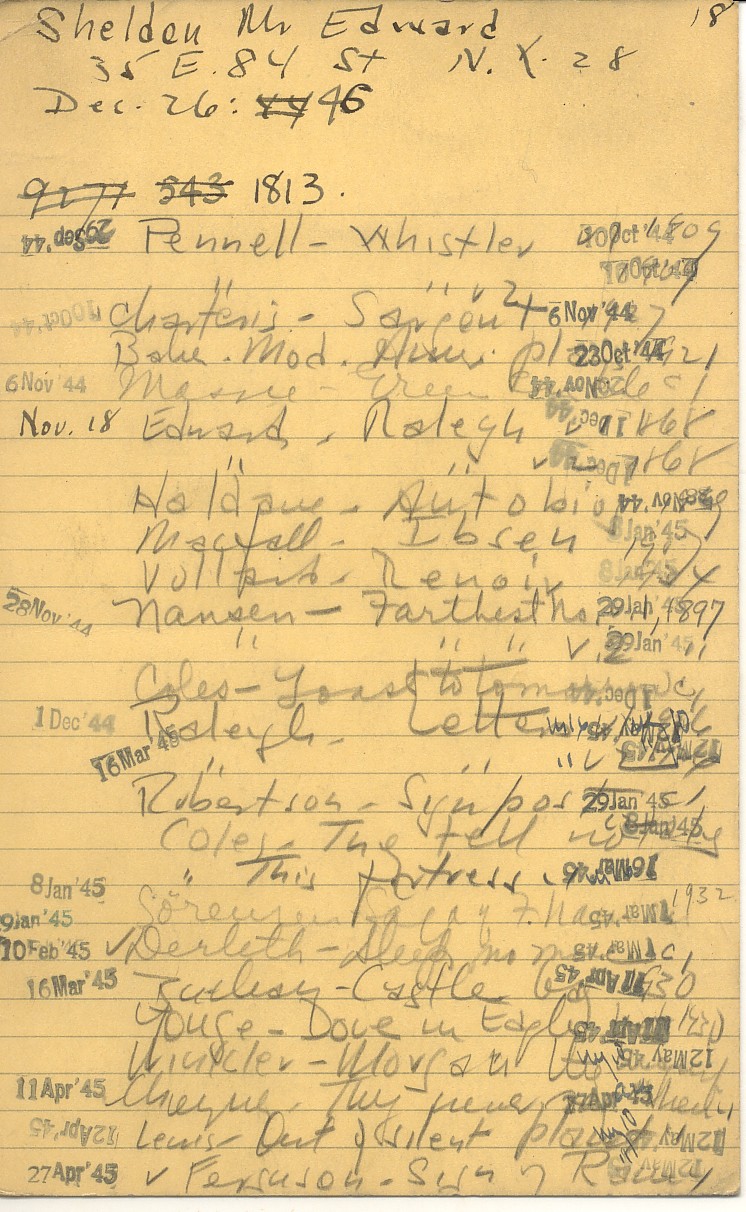 18
Sheldon Mr Edward
35 E. 84 St N.Y. 28
Dec. 26: 44 46
9277 543 1813.
29 Sep '44 Pennell - Whistler 10 Oct '44 1909
" " v 2 10 Oct '44
10 Oct '44 Charteris - Sargent 6 Nov '44 1927
Bake. Mod. Amer. pl 23 Oct '44 1921
6 Nov '44 Massie - Green Nov '44
Nov. 18 Edwards, Ralegh v 1 Dec '44 1868
" " v 1 Dec '44 1868
Haldane - Autobio 28 Nov '44
Macfall - Ibsen 8 Jan '45
Vollard - Renoir 8 Jan '45
28 Nov '44 Nansen - Farthest No. 29 Jan '45 v 1, 1897
" " " v. 2 29 Jan '45 "
Coles - Toast to tomorrow 1 Dec '44
1 Dec '44 Raleigh - Letters 12 May '45
16 Mar '45 " " " v 12 May '45
Robertson - Sympos 29 Jan '45
Coles - They tell no 8 Jan '45
" This fortress 16 Mar '45
8 Jan '45 Sörensen Saga of F. Nan 1 Mar '45 1932
29 Jan '45
10 Feb '45 v Derleth - Sleep no more 1 Mar '45
16 Mar '45 Buchan - Castle Gay 11 Apr '45 1930
Yonge - Dove in Eagle 11 Apr '45
Winkler - Morgan the 12 May '45
11 Apr '45 Cheyne - They never
12 Apr '45 Lewis - Out of silent planet 12 May '45
27 Apr '45 v Ferguson - Sign of Ram 12 May '45